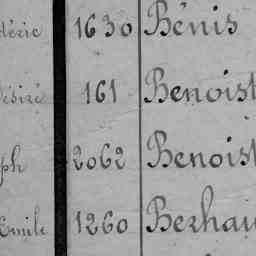 déric 1630 Bénis
Désiré 161 Benoist
ph 2062 Benoist
Emile 1260 Berhau